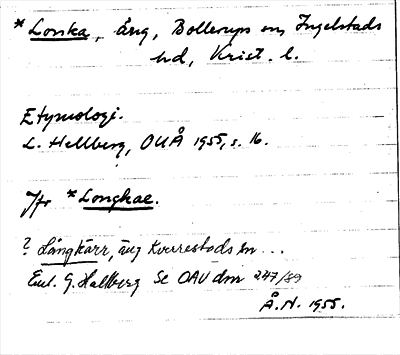 * Lonka, äng, Bollerups sn, Ingelstads
hd, Krist. l.
Etymologi.
L. Hellberg, OUÅ 1955, s. 16.
Jfr *Longkae.
? Långkärr, äng Kverrestads sn...
Enl. G. Hallberg Se OAU dnr 247/89
Å.N. 1955.